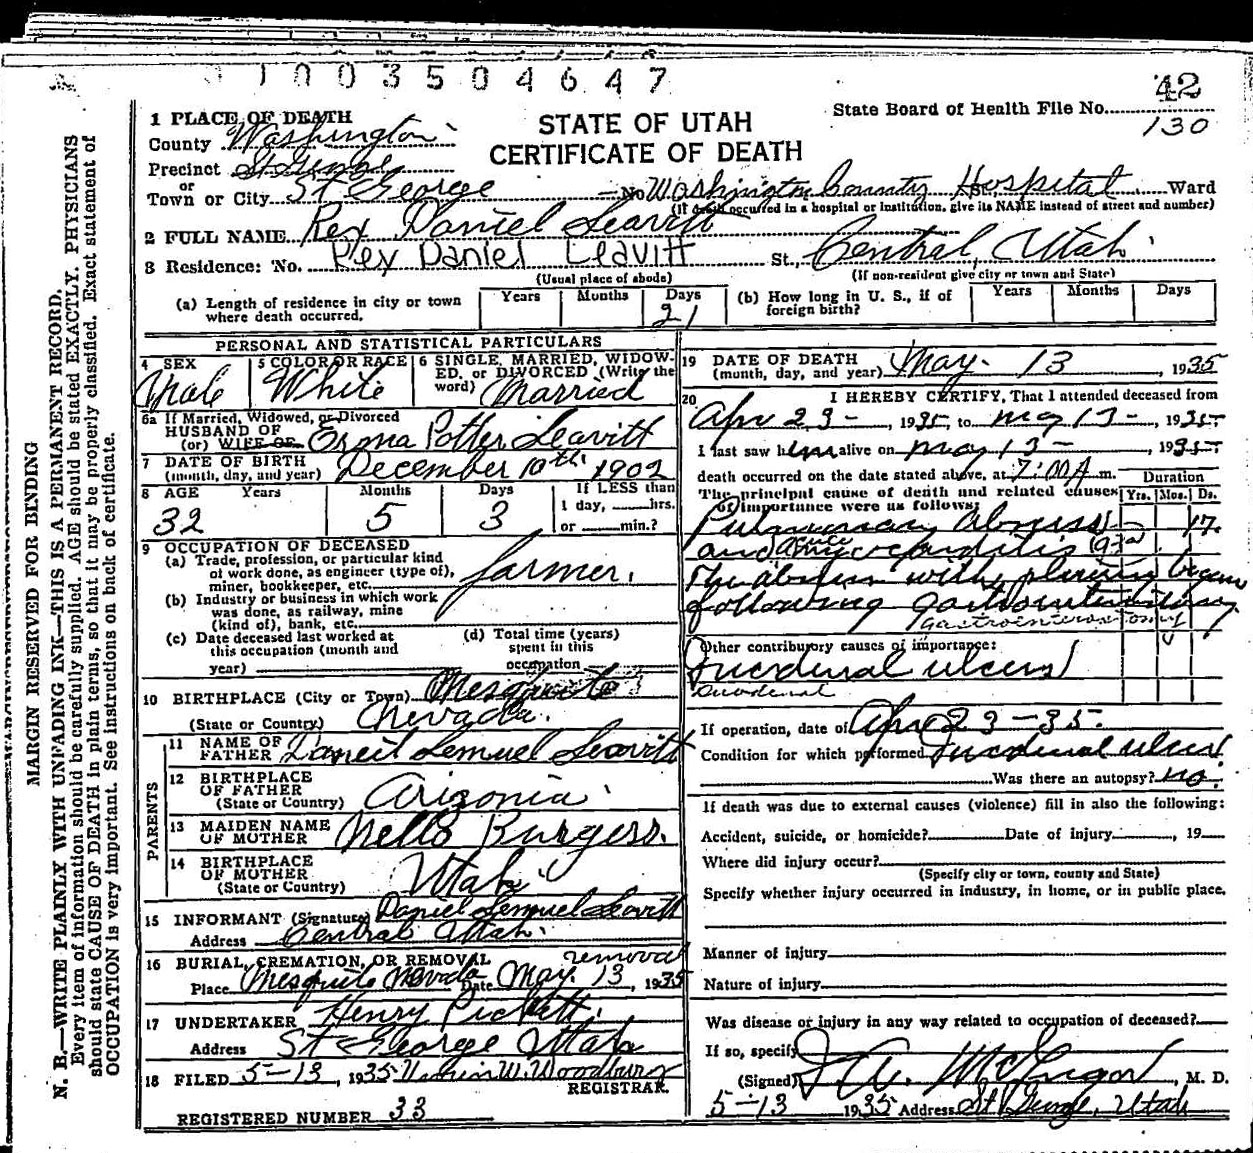 1003504647
42
State Board of Health File No.
130
STATE OF UTAH
CERTIFICATE OF DEATH
1 PLACE OF DEATH
County Washington
Precinct St George
or
Town or City St George No Washington County Hospital Ward
(If death occurred in a hospital or institution, give its NAME instead of street and number)
2 FULL NAME Rex Daniel Leavitt
3 Residence: No. Rex Daniel Leavitt St., Central, Utah
(Usual place of abode) (If non-resident give city or town and State)
(a) Length of residence in city or town where death occurred. Years Months Days 21
(b) How long in U. S., if of foreign birth? Years Months Days
PERSONAL AND STATISTICAL PARTICULARS
4 SEX Male
5 COLOR OR RACE White
6 SINGLE, MARRIED, WIDOWED. or DIVORCED (Write the word) Married
6a If Married, Widowed, or Divorced
HUSBAND OF
(or) WIFE OF Potter Leavitt
7 DATE OF BIRTH
(month, day, and year) December 10th 1902
8 AGE Years Months Days If LESS than
32 5 3 1 day, hrs.
or min.?
9 OCCUPATION OF DECEASED
(a) Trade, profession, or particular kind of work done, as engineer (type of), miner, bookkeeper, etc. farmer.
(b) Industry or business in which work was done, as railway, mine (kind of), bank, etc.
(c) Date deceased last worked at this occupation (month and year)
(d) Total time (years) spent in this occupation
10 BIRTHPLACE (City or Town) Mesquite
(State or Country) Nevada.
PARENTS
11 NAME OF FATHER Daniel Lemuel Leavitt
12 BIRTHPLACE OF FATHER
(State or Country) Arizonia
13 MAIDEN NAME OF MOTHER Burgess.
14 BIRTHPLACE OF MOTHER
(State or Country) Utah
15 INFORMANT (Signature) Daniel Lemuel Leavitt
Address Central Utah.
16 BURIAL, CREMATION, OR REMOVAL removal
Place Mesquite Nevada Date May. 13, 1935
17 UNDERTAKER Henry Pickett.
Address St George Utah
18 FILED 5-13, 1935 W. Woodbury
REGISTRAR.
REGISTERED NUMBER 33
19 DATE OF DEATH
(month, day, and year) May. 13, 1935
20 I HEREBY CERTIFY, That I attended deceased from
Apr 23-, 1935, to May 13-, 1935
I last saw him alive on May 13-, 1935
death occurred on the date stated above, at 7:00A m.
The principal cause of death and related causes of importance were as follows: Duration
Yrs. Mos. Ds.
Pulmonary abscess 17.
and acute
The abscess with pleurisy began
following gastroenterostomy
gastroenterostomy
Other contributory causes of importance:
Duodenal ulcer
Duodenal
If operation, date of Apr 23-35.
Condition for which performed Duodenal ulcer
Was there an autopsy? no.
If death was due to external causes (violence) fill in also the following:
Accident, suicide, or homicide? Date of injury, 19
Where did injury occur?
(Specify city or town, county and State)
Specify whether injury occurred in industry, in home, or in public place.
Manner of injury
Nature of injury
Was disease or injury in any way related to occupation of deceased?
If so, specify
(Signed) McGregor, M. D.
5-13 1935 Address St George, Utah
MARGIN RESERVED FOR BINDING
N. B.—WRITE PLAINLY WITH UNFADING INK—THIS IS A PERMANENT RECORD.
Every item of information should be carefully supplied. AGE should be stated EXACTLY. PHYSICIANS
should state CAUSE OF DEATH in plain terms, so that it may be properly classified. Exact statement of
OCCUPATION is very important. See instructions on back of certificate.